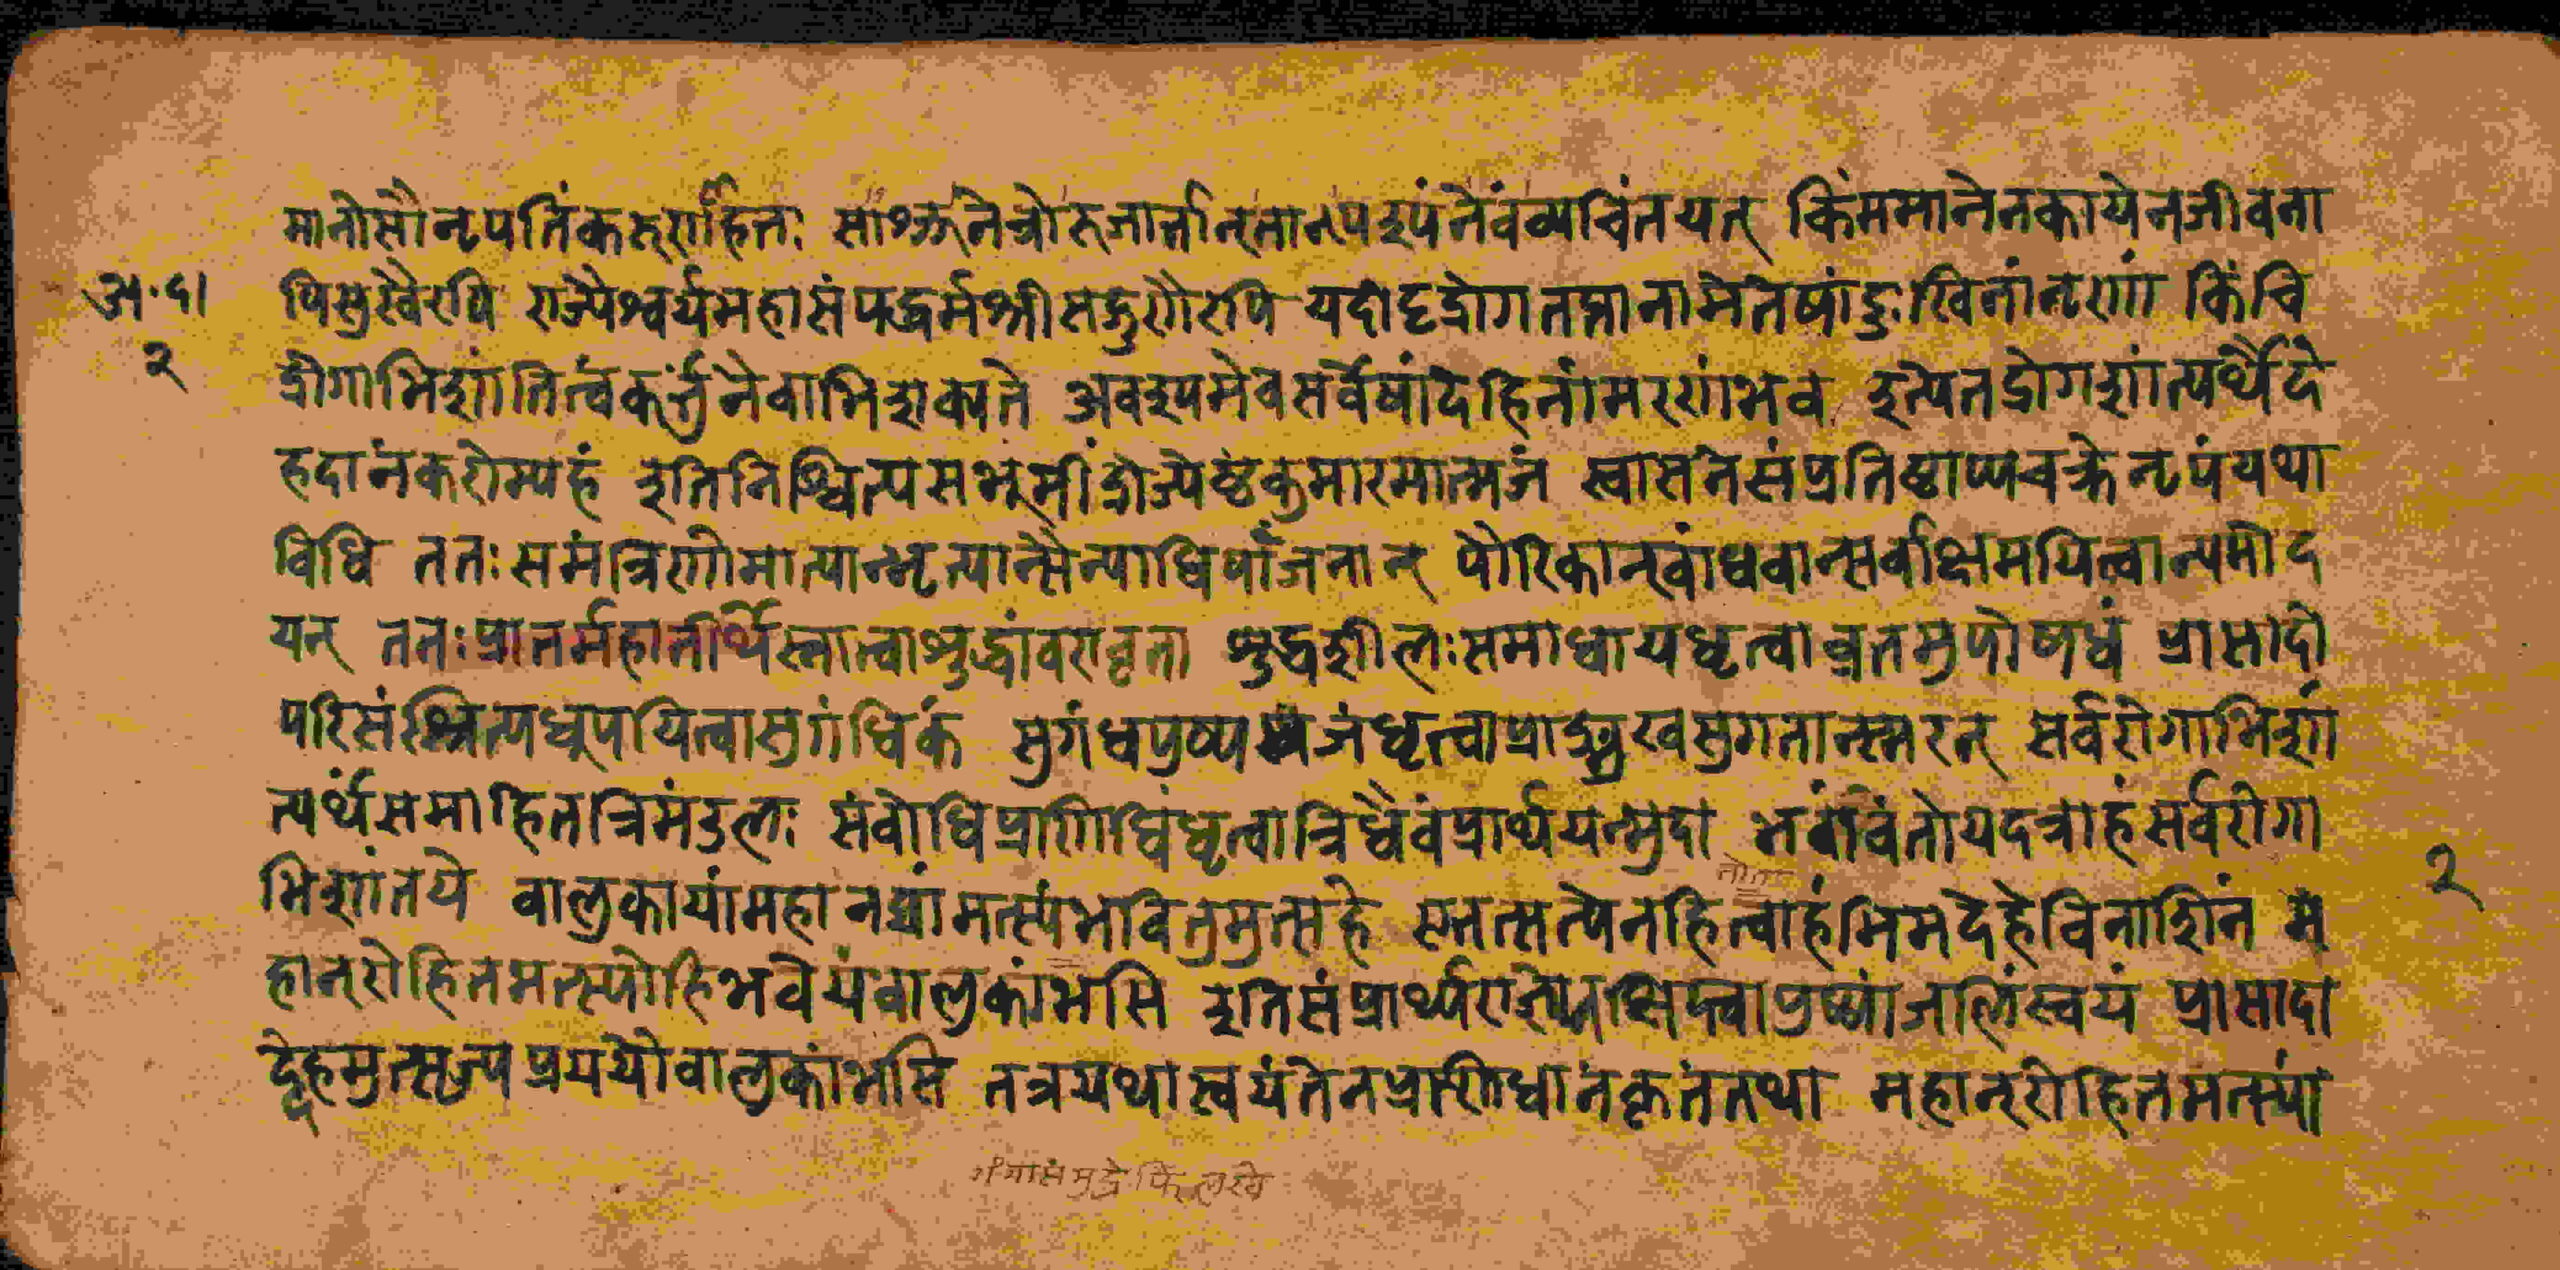 मानोसौनृपतिंकरुणार्हितः साश्रुनेत्रोरुजार्त्तान्स्तान्पश्यंनेवंव्यचिंतयत् किंममानेनकायेनजीवना
अ॰दा पिसुखैरपि राज्यैश्वर्यमहासंपद्धर्मश्रीसद्गुणैरपि यदीदृद्रोगतप्तानामेतेषांदुःखिनांनृणां किंचि
२ द्रोगाभिशांतित्वंकर्त्तुनेवाभिशक्यते अवश्यमेवसर्वेषांदेहिनांमरणंभव इत्येतद्रोगशांत्यर्थैदे
हदानंकरोम्यहं इतिनिश्चित्यसभूमींद्रोज्येष्ठंकुमारमात्मजं स्वासनेसंप्रतिष्ठाप्यचक्रेनृपंयथा
विधि ततःसमंत्रिणोमात्यान्भृत्यान्सैन्याधिपाँजनान् पौरिकान्बांधवान्सर्वाक्षमयित्वान्यमोद
यत् ततःप्रातर्महातीर्थेस्नात्वाशुद्धांवरावृता शुद्धशीलःसमाधायधृत्वाव्रतमुपोषधं प्रासादो
परिसंश्रित्यधूपयित्वासुगंधिकं सुगंधपुष्प जंधृत्वाप्राङ्मुखसुगतान्स्मरन् सर्वरोगाभिशां
त्यर्थंसमाहितत्रिमंडलः संबोधिप्रणिधिंधृत्वात्रिधैवंप्रार्थयन्मुदा यदत्राहंसर्वरोगा
भिशांतये वालुकायांमहानद्यांमत्स्यंभवितुमुत्सहे एतत्सत्येनहित्वाहंमिमदेहेविनाशिनं म २
हान्रोहितमत्स्योहिभवेयंवालुकांभसि इतिसंप्रार्थ्य क्षिप्त्वापुष्पांजलिंस्वयं प्रासादा
द्देहमुत्सृज्यप्रययौवालुकांभसि तत्रयथास्वयंतेनप्रणीधानंकृतंतथा महान्रोहितमत्स्यां